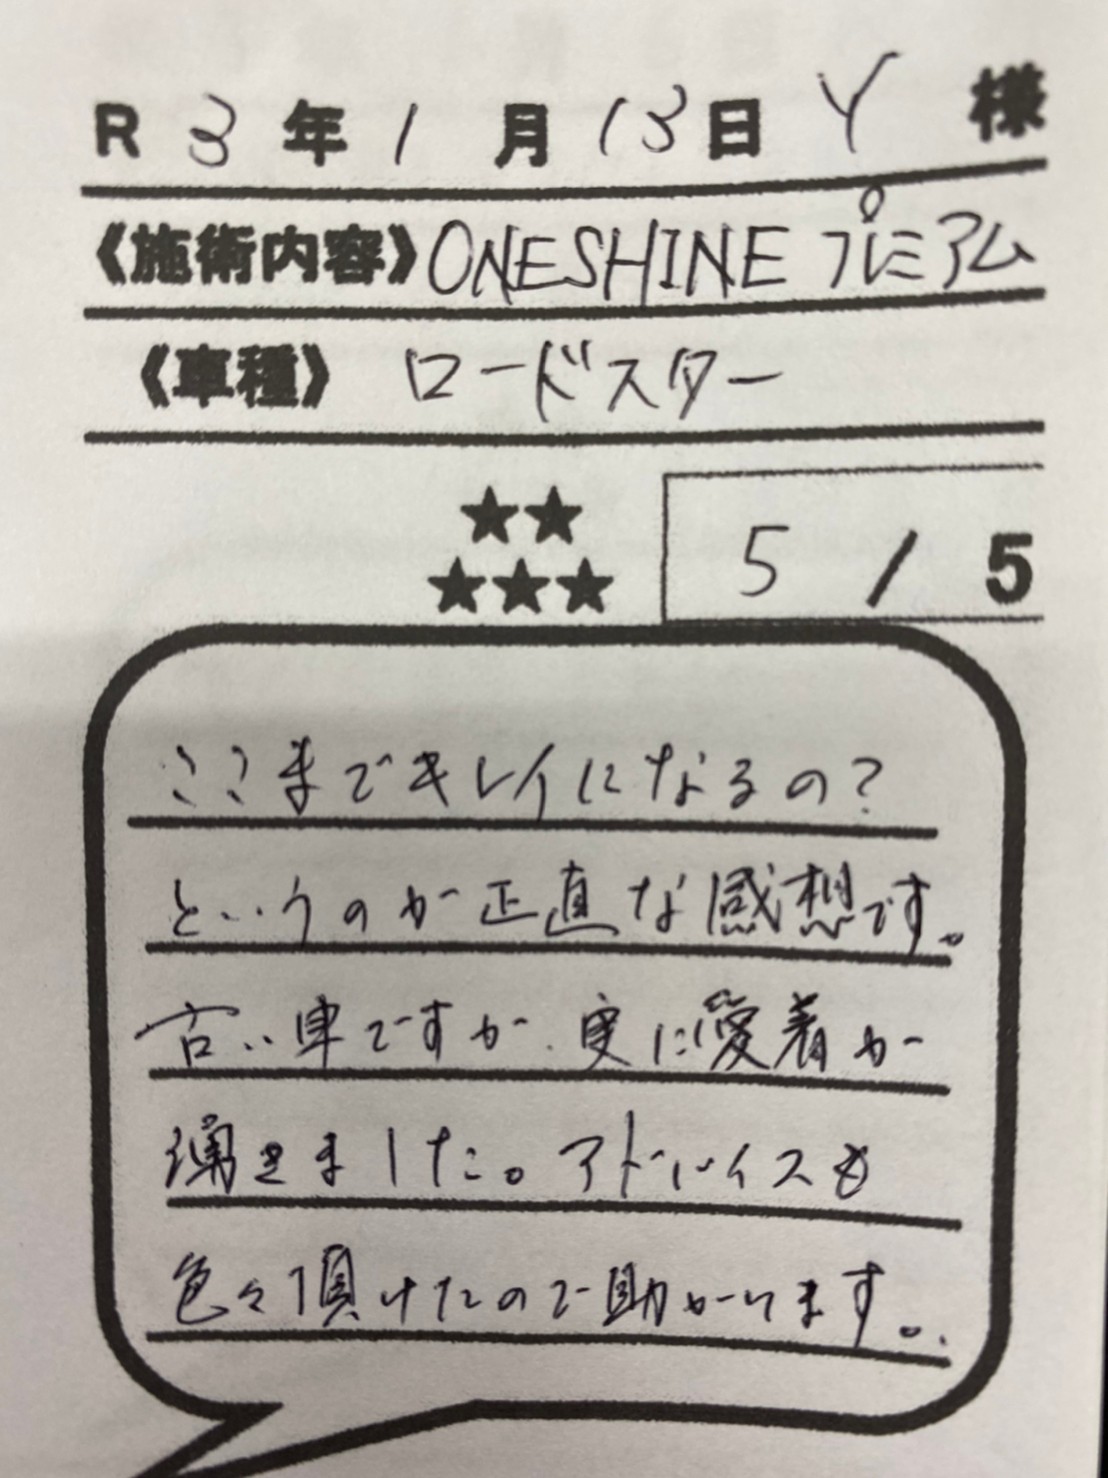 R 3 年 1 月 13 日 Y 様
《施術内容》ONESHINE プレミアム
《車種》ロードスター
★★
★★★
5 / 5
ここまでキレイになるの?
というのが正直な感想です。
古い車ですが、更に愛着が
湧きました。アドバイスも
色々頂けたので助かります。